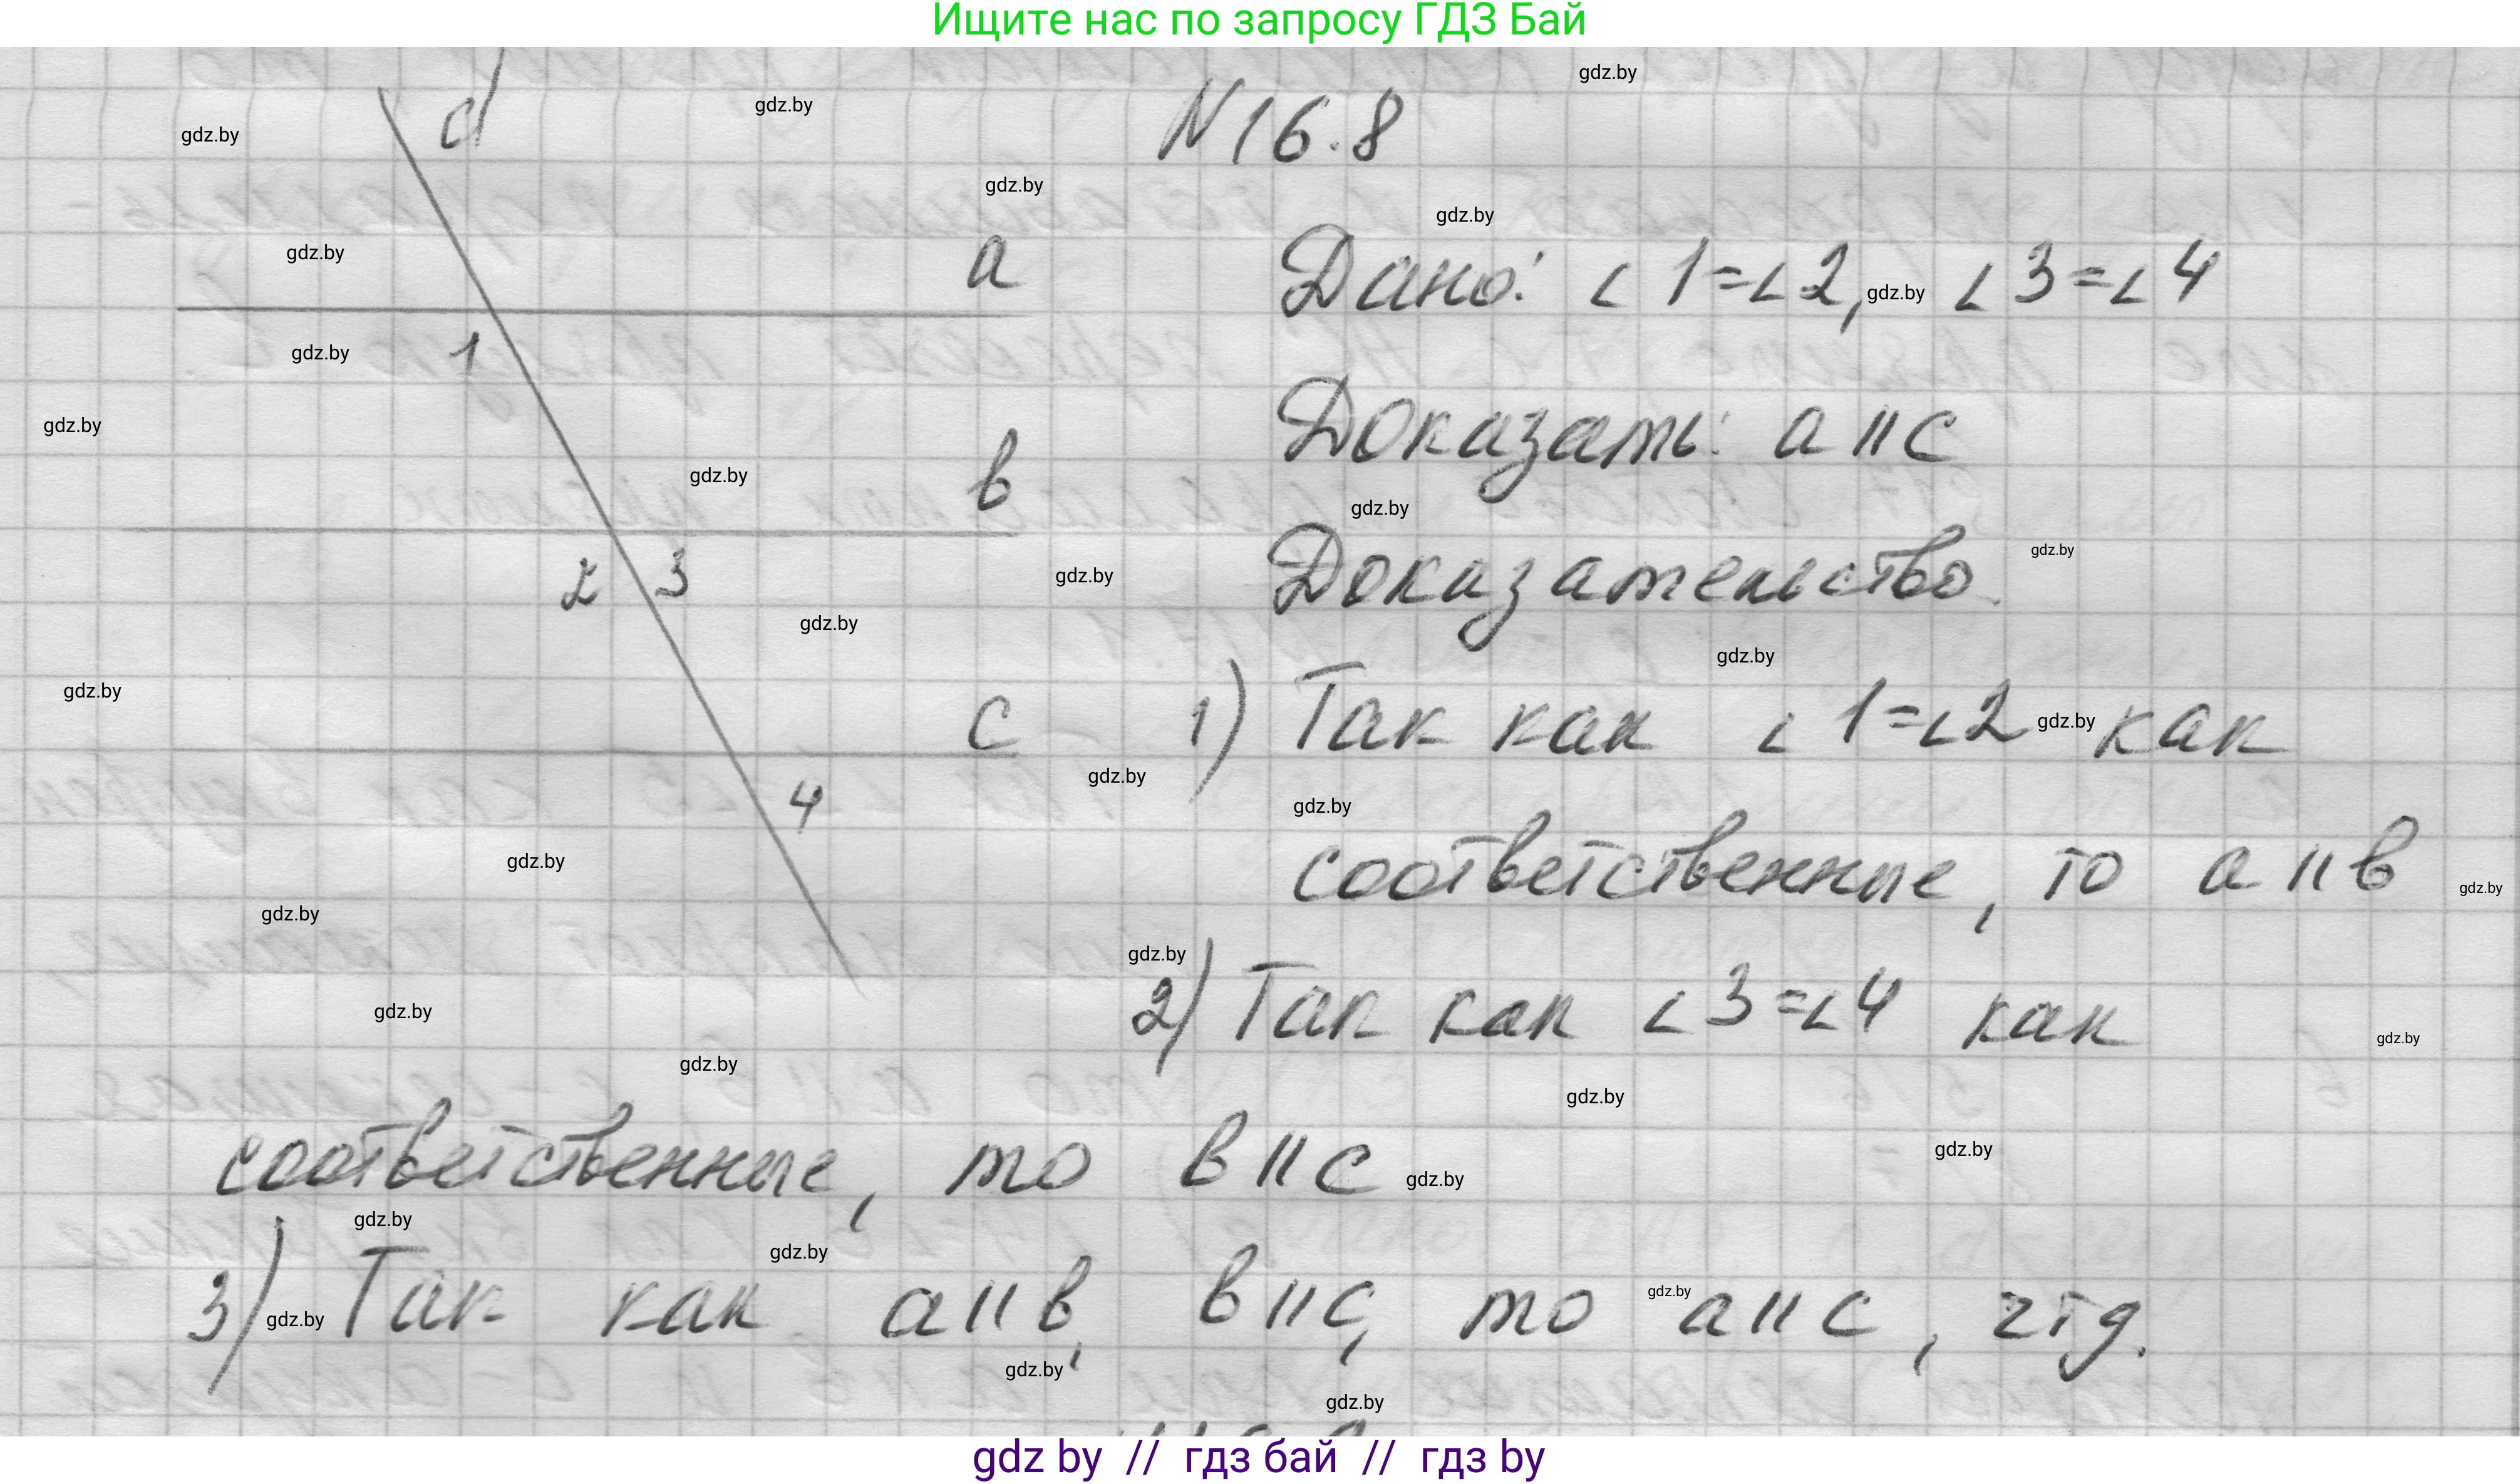 Ищите нас по запросу ГДЗ Бай
d
N 16.8
a
Дано: ∠1=∠2, ∠3=∠4
1
Доказать: a || c
в
Доказательство.
2 3
c
1) Так как ∠1=∠2 как
4
соответственные, то a || в
2) Так как ∠3=∠4 как
соответственные, то в || c
3) Так как a || в, в || c, то a || c, чтд.
gdz.by
gdz by // гдз бай // гдз by